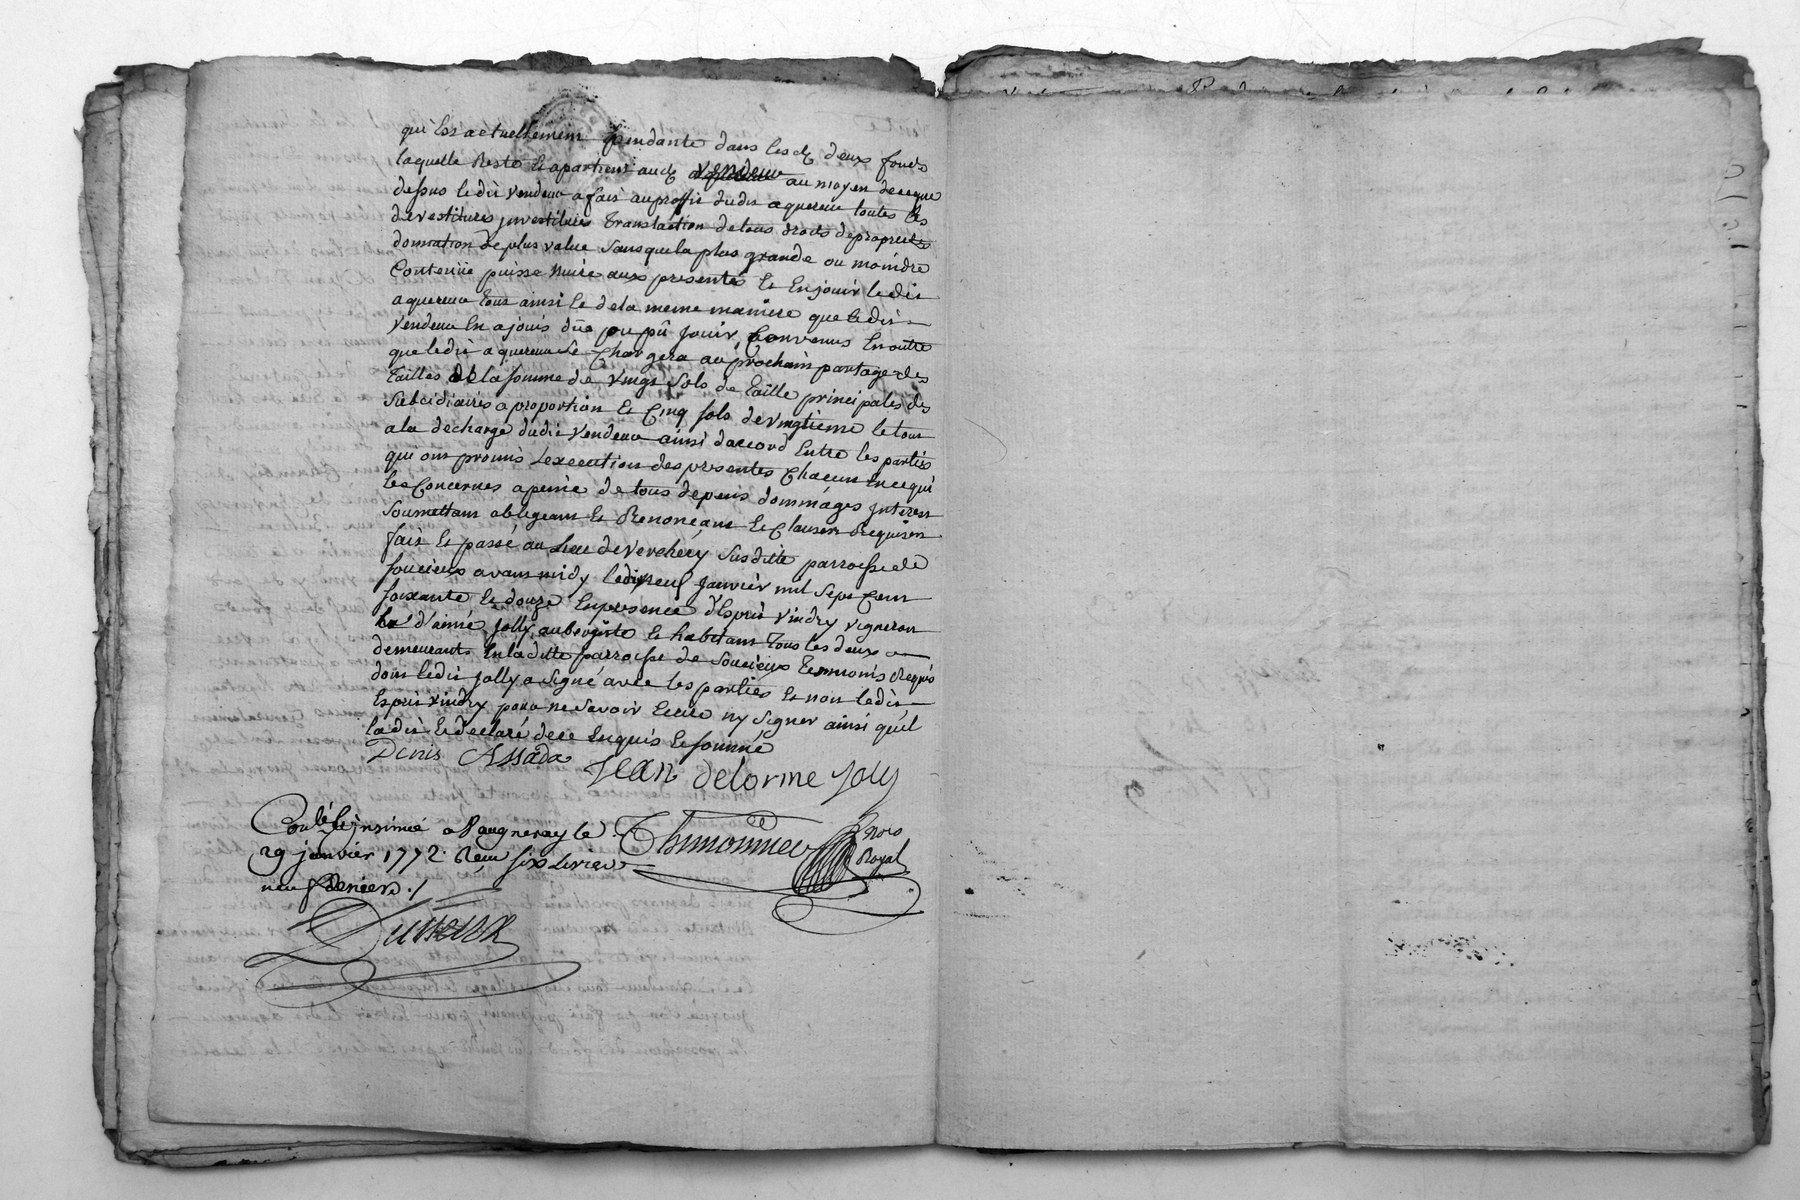 qui Est actuellement pendante dans lesd deux fonds
laquelle Reste Et apartient aud vendeur au moyen de ceque
dessus ledit vendeur a fait au proffit dudit aquereur toutes les
devestitures jnvestitures translaction de tous droits de proprieté
donnation de plus value sans que la plus grande ou moindre
Contenüe puisse nuire aux presentes Et En jouir ledit
aquereur tout ainsi Et de la meme maniere que ledit
vendeur En a jouis dûe ou pû jouir, Convenus En outre
que ledit aquereur se Chargera au prochain partage des
tailles de la somme de vingt sols de taille principales des
subcidiaires a proportion Et Cinq sols de vingtieme le tout
a la decharge dudit vendeur ainsi daccord Entre les parties
qui ont promis Lexecution des presentes Chacun En ce qui
les Concernes a peine de tous depens dommages jnterest
soumettant obligeant Et Renonceant Et Clauses Requises
fait Et passé au Lieu de Verchery susditte parroisse de
soucieux avant midy le dixneuf janvier mil sept Cent
soixante Et douze En presence d'Esprit vindry vigneron
Et d'aimé jolly aubergiste Et habitant tous les deux
demeurants En laditte parroisse de soucieux temoins Requis
dont ledit jolly a signé avec les parties Et non ledit
Esprit vindry pour ne savoir Ecrire ny signer ainsi qu'il
la dit Et declaré de ce Enquis Et sommé
Denis Assada
Jean delorme Joly
Conlé Et jnsinué a Vaugneray le
29 janvier 1772. Reçu six Livres
neuf deniers ./
Thimonnier
Not
Royal